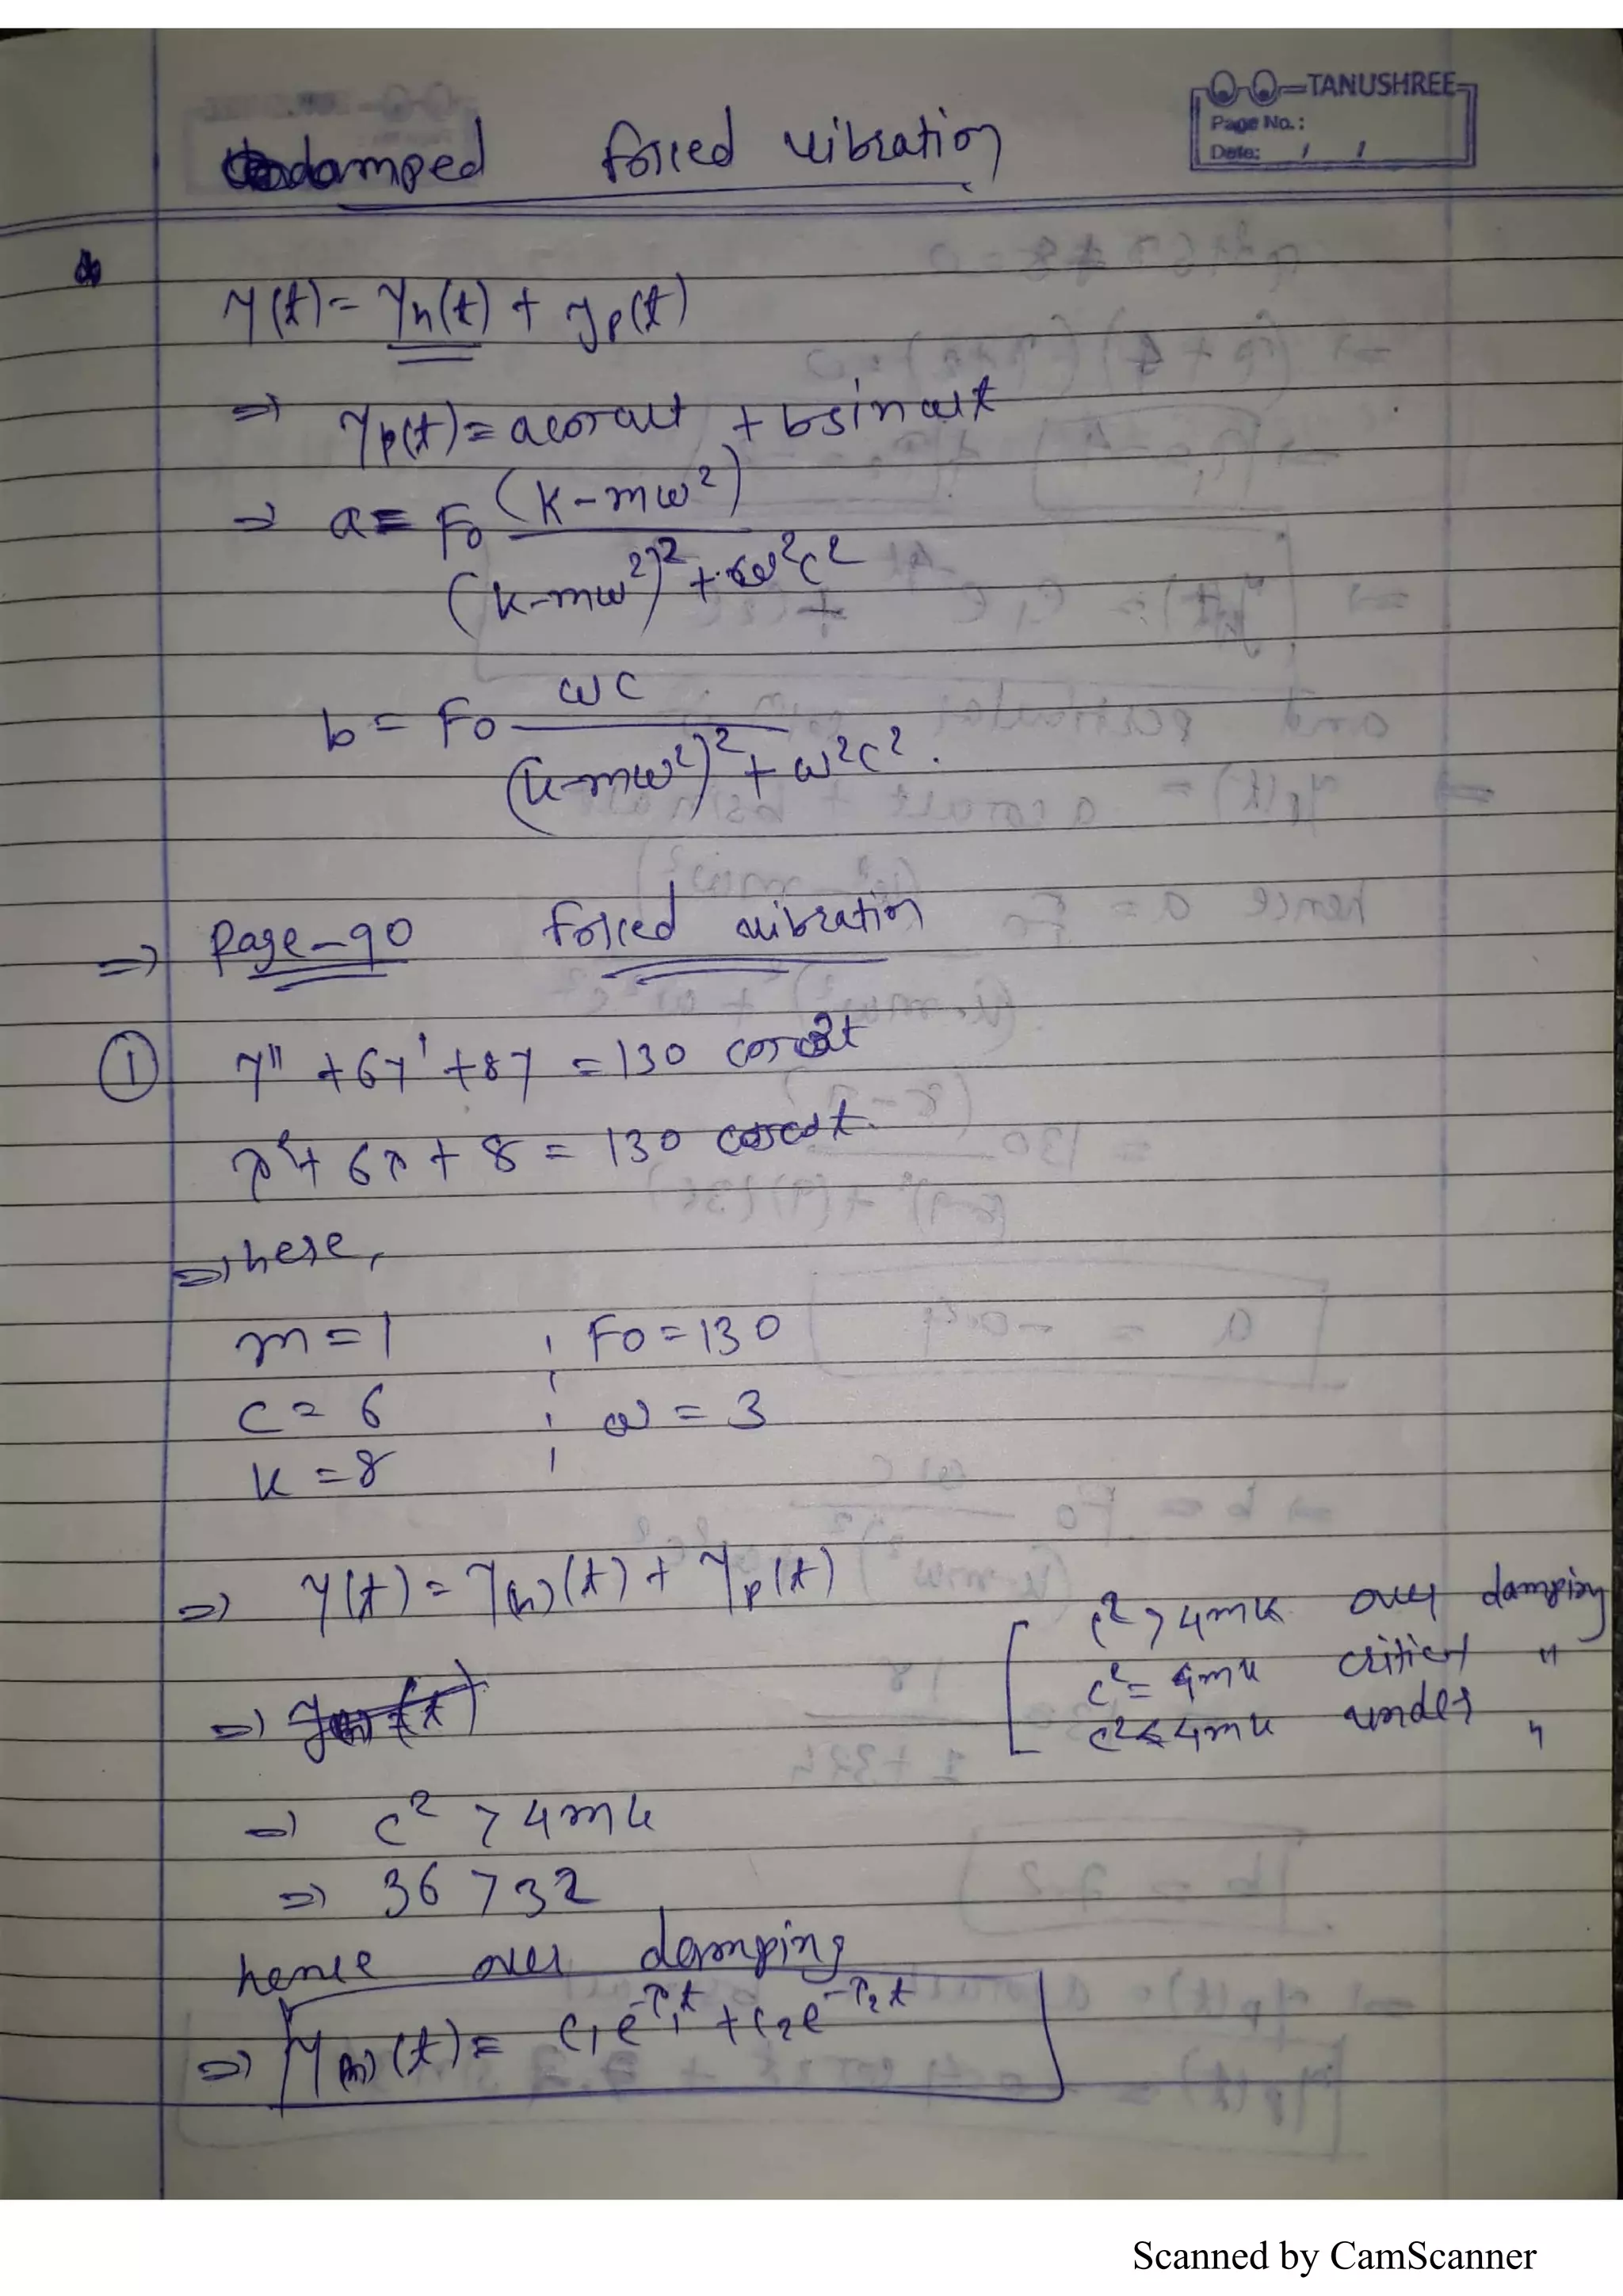 TANUSHREE
Page No.:
Date: / /
damped forced vibration
y(t) = yh(t) + yp(t)
⇒ yp(t) = a cos ωt + b sin ωt
⇒ a = F0 (k-mω²) / (k-mω²)² + ω²c²
b = F0 ωc / (k-mω²)² + ω²c².
⇒ Page-90 forced vibration
① y'' + 6y' + 8y = 130 cos 3t
λ² + 6λ + 8 = 130 cos ωt
⇒ here,
m = 1 ; F0 = 130
c = 6 ; ω = 3
k = 8
⇒ y(t) = y(h)(t) + yp(t)
c² > 4mk over damping
c² = 4mk critical "
c² < 4mk under "
⇒ c² > 4mk
⇒ 36 > 32
hence over damping
⇒ y(h)(t) = c₁e^-λ₁t + c₂e^-λ₂t
Scanned by CamScanner